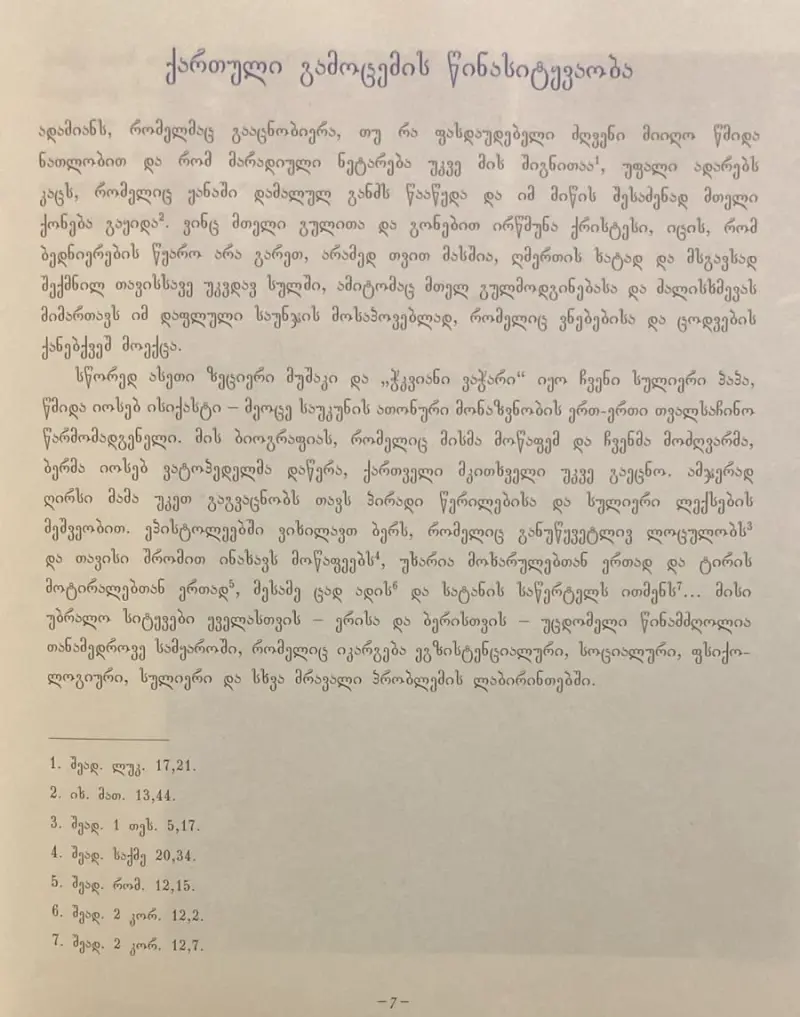 ქართული გამოცემის წინასიტყვაობა
ადამიანს, რომელმაც გააცნობიერა, თუ რა ფასდაუდებელი ძღვენი მიიღო წმიდა
ნათლობით და რომ მარადიული ნეტარება უკვე მის შიგნითაა¹, უფალი ადარებს
კაცს, რომელიც ყანაში დამალულ განძს წააწყდა და იმ მიწის შესაძენად მთელი
ქონება გაყიდა². ვინც მთელი გულითა და გონებით ირწმუნა ქრისტესი, იცის, რომ
ბედნიერების წყარო არა გარეთ, არამედ თვით მასშია, ღმერთის ხატად და მსგავსად
შექმნილ თავისსავე უკვდავ სულში, ამიტომაც მთელ გულმოდგინებასა და ძალისხმევას
მიმართავს იმ დაფლული საუნჯის მოსაპოვებლად, რომელიც ვნებებისა და ცოდვების
ქანებქვეშ მოექცა.
სწორედ ასეთი ზეციერი მუშაკი და „ჭკვიანი ვაჭარი“ იყო ჩვენი სულიერი პაპა,
წმიდა იოსებ ისიქასტი – მეოცე საუკუნის ათონური მონაზვნობის ერთ-ერთი თვალსაჩინო
წარმომადგენელი. მის ბიოგრაფიას, რომელიც მისმა მოწაფემ და ჩვენმა მოძღვარმა,
ბერმა იოსებ ვატოპედელმა დაწერა, ქართველი მკითხველი უკვე გაეცნო. ამჯერად
ღირსი მამა უკეთ გაგვაცნობს თავს პირადი წერილებისა და სულიერი ლექსების
მეშვეობით. ეპისტოლეებში ვიხილავთ ბერს, რომელიც განუწყვეტლივ ლოცულობს³
და თავისი შრომით ინახავს მოწაფეებს⁴, უხარია მოხარულებთან ერთად და ტირის
მოტირალებთან ერთად⁵, მესამე ცად ადის⁶ და სატანის საწერტელს ითმენს⁷... მისი
უბრალო სიტყვები ყველასთვის – ერისა და ბერისთვის – უცდომელი წინამძღოლია
თანამედროვე სამყაროში, რომელიც იკარგება ეგზისტენციალური, სოციალური, ფსიქო-
ლოგიური, სულიერი და სხვა მრავალი პრობლემის ლაბირინთებში.
1. შეად. ლუკ. 17,21.
2. იხ. მათ. 13,44.
3. შეად. 1 თეს. 5,17.
4. შეად. საქმე 20,34.
5. შეად. რომ. 12,15.
6. შეად. 2 კორ. 12,2.
7. შეად. 2 კორ. 12,7.
– 7 –